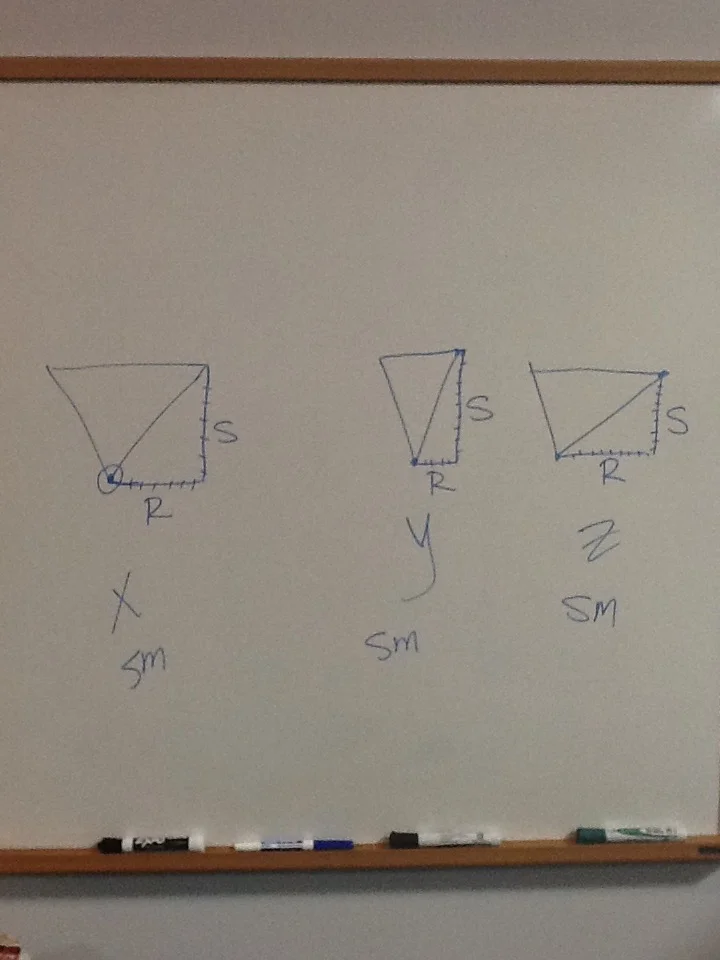 S
R
X
sm
S
R
y
sm
S
R
z
sm